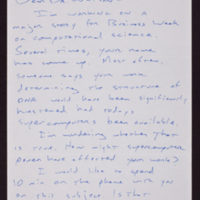 I'm working on a
major story for Business Week
on computational science.
Several times, your name
has come up. Most often,
someone says your work
determining the structure of
DNA would have been significantly
hastened had today's
supercomputers been available.
I'm wondering whether that
is true. How might supercomputer
power have affected your work?
I would like to spend
10 min on the phone with you
on this subject. Is that